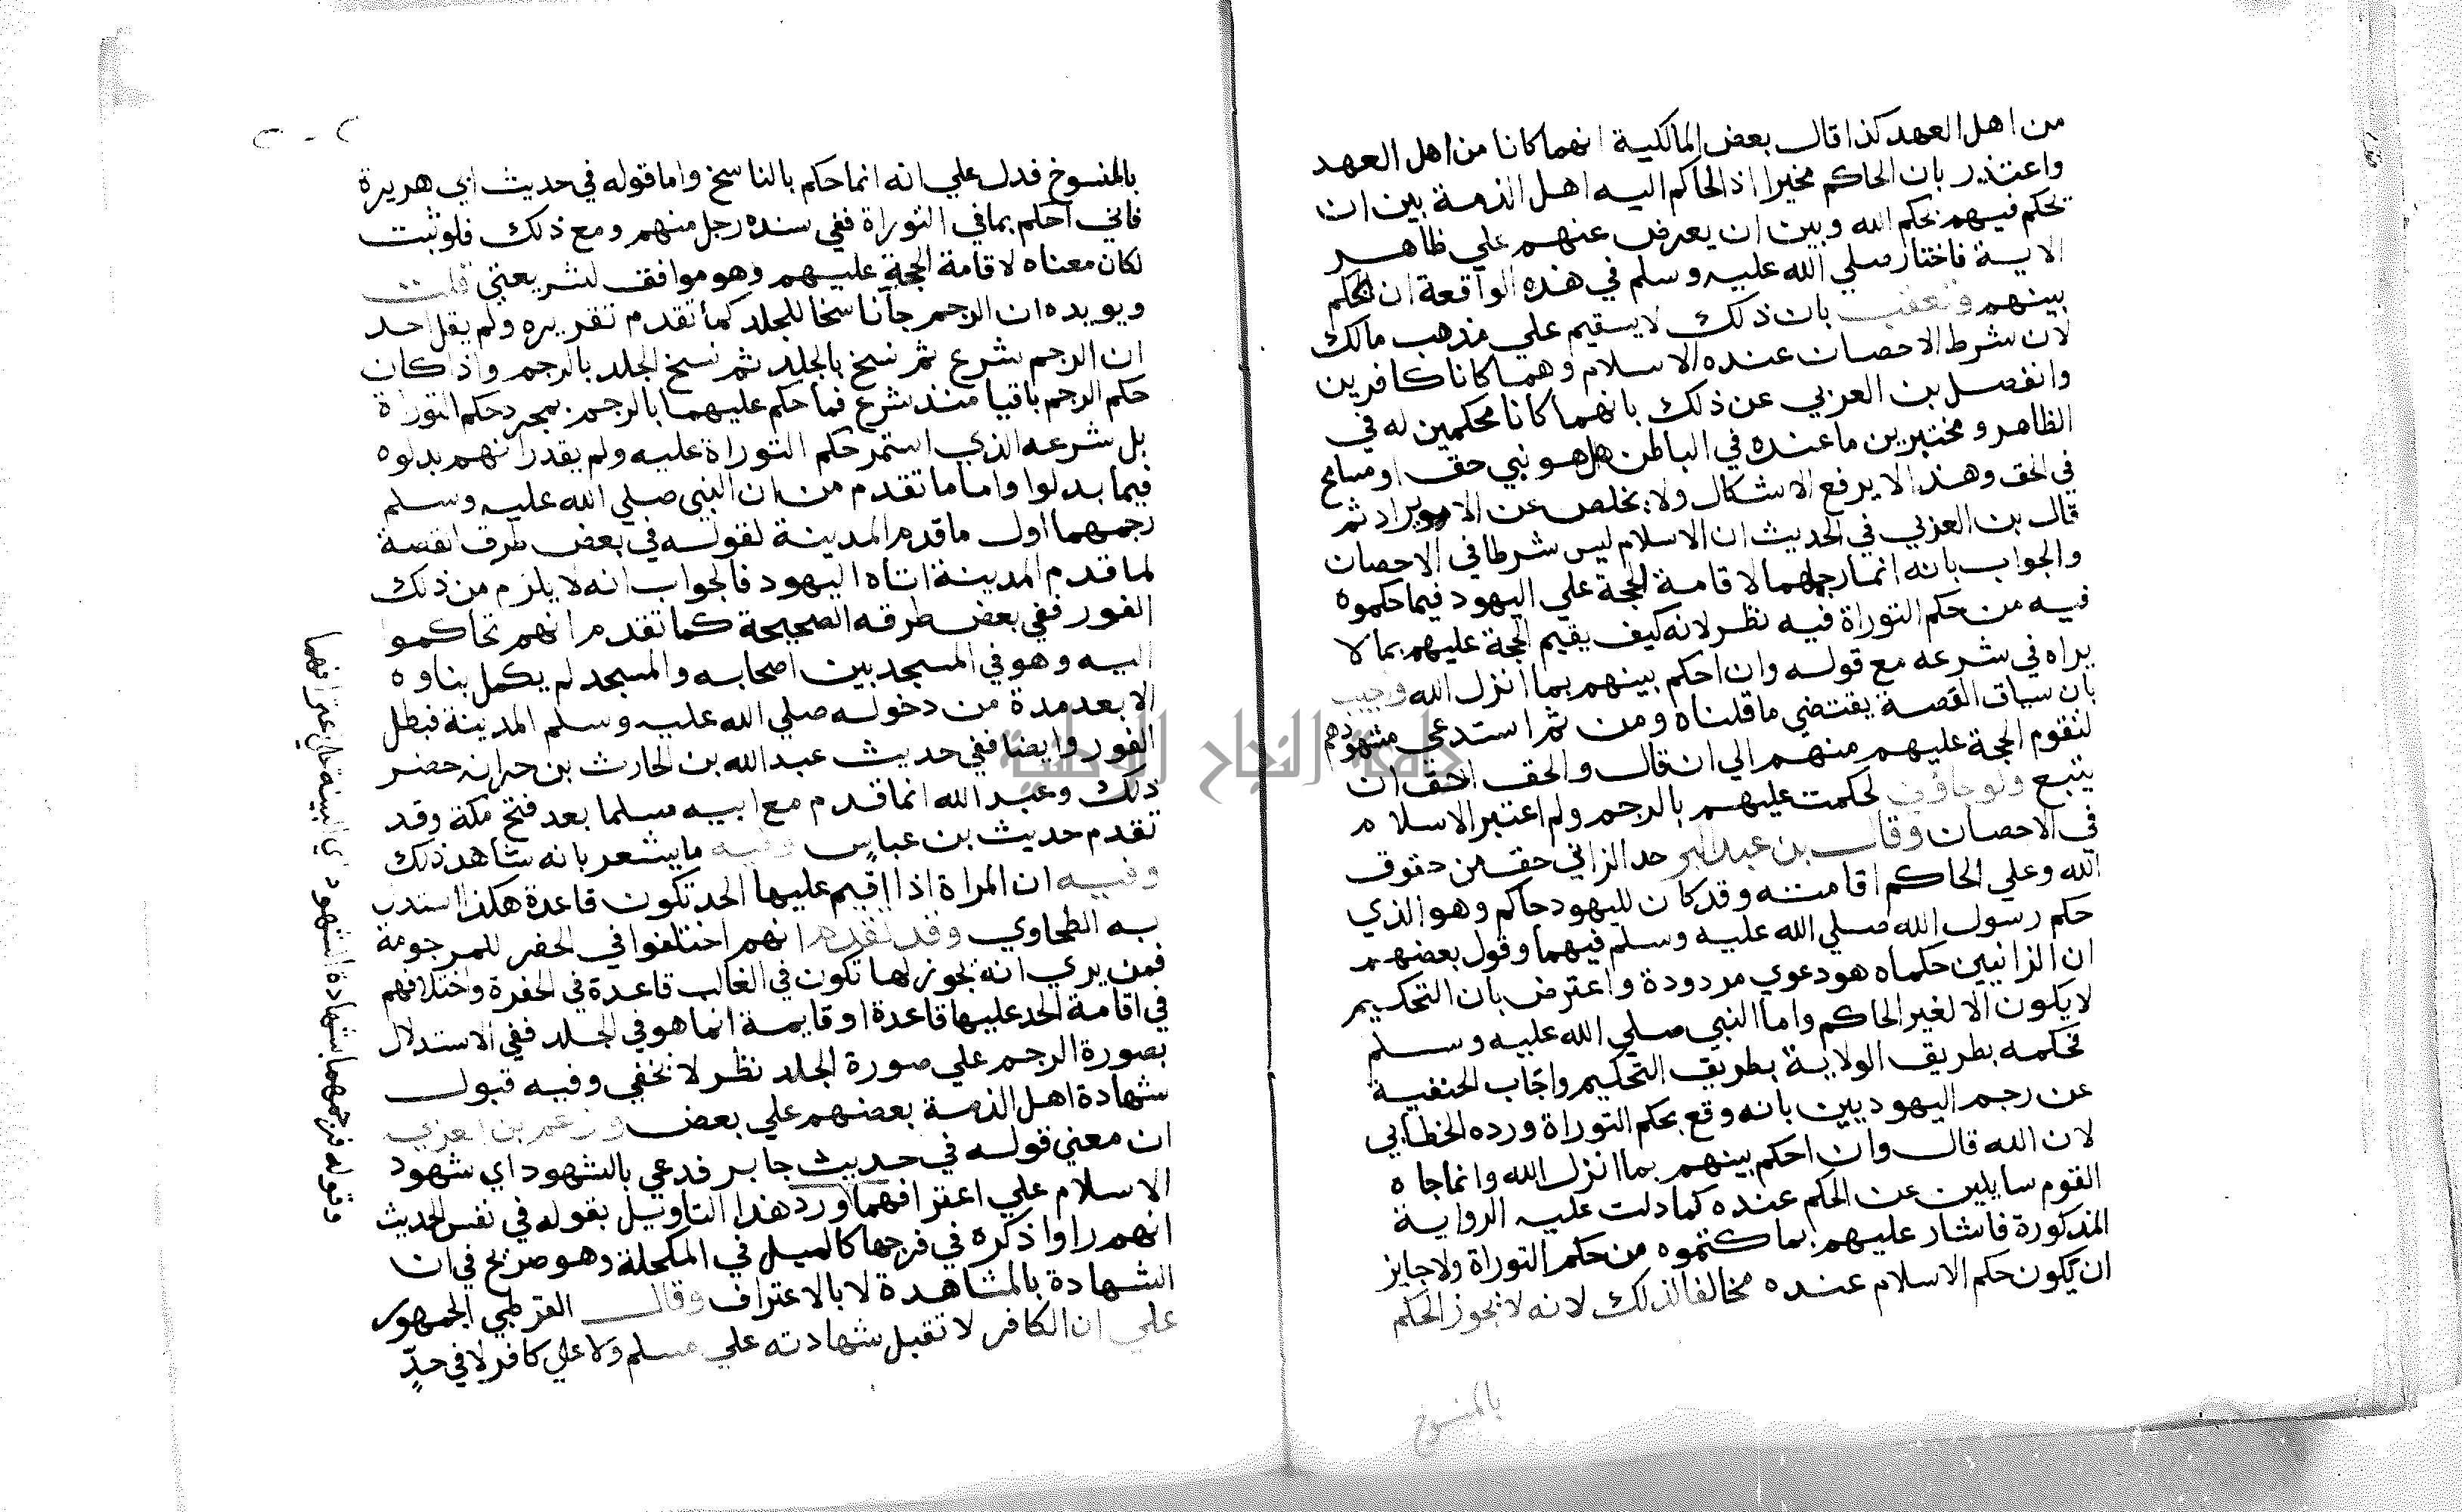 من اهل العهد كذا قال بعض المالكية انهما كانا من اهل العهد
واعتذر بان الحاكم مخيرا اذا لحاكم اليه اهل الذمة بين ان
يحكم فيهم بحكم الله وبين ان يعرض عنهم علي ظاهر
الاية فاختار صلي الله عليه وسلم في هذه الواقعة ان الحكم
بينهم وتعقب بان ذلك لا يستقيم علي مذهب مالك
لان شرط الاحصان عنده الاسلام وهما كانا كافرين
وانفصل بن العربي عن ذلك بانهما كانا محكمين له في
الظاهر ومختبرين ما عنده في الباطن هل هو نبي حق او مسامح
في الحق وهذا لا يرفع الاشكال ولا يخلص عن الايراد ثم
قال بن العربي في الحديث ان الاسلام ليس شرطا في الاحصان
والجواب بانه انما رجمهما لاقامة الحجة علي اليهود فيما حكموه
فيه من حكم التوراة فيه نظر لانه كيف يقيم الحجة عليهم بما لا
يراه في شرعه مع قوله وان احكم بينهم بما انزل الله واجيب
بان سياق القصة يقتضي ما قلناه ومن ثم استدعي شهودهم
لتقوم الحجة عليهم منهم الي ان قال والحق احق ان
يتبع ولو جاوني لحكمت عليهم بالرجم ولم اعتبر الاسلام
في الاحصان وقال بن عبد البر حد الزاني حق من حقوق
الله وعلي الحاكم اقامته وقد كان لليهود حاكم وهو الذي
حكم رسول الله صلي الله عليه وسلم فيهما وقول بعضهم
ان الزانيين حكماه هو دعوي مردودة واعترض بان التحكيم
لا يكون الا لغير الحاكم واما النبي صلي الله عليه وسلم
فحكمه بطريق الولاية بطريق التحكيم واجاب الحنفية
عن رجم اليهوديين بانه وقع بحكم التوراة ورده الخطابي
لان الله قال وان احكم بينهم بما انزل الله وانما جاه
القوم سايلين عن الحكم عنده كما دلت عليه الرواية
المذكورة فاشار عليهم بما كتموه من حكم التوراة ولا جايز
ان يكون حكم الاسلام عنده مخالفا لذلك لانه لا يجوز الحكم
بالمنسوخ
بالمنسوخ فدل علي انه انما حكم بالناسخ واما قوله في حديث ابي هريرة
فاني احكم بما في التوراة ففي سنده رجل منهم ومع ذلك فلو ثبت
لكان معناه لاقامة الحجة عليهم وهو موافق لشريعتي قلت
ويويده ان الرجم جا ناسخا للجلد كما تقدم تقريره ولم يقل احد
ان الرجم شرع ثم نسخ بالجلد ثم نسخ الجلد بالرجم واذا كان
حكم الرجم باقيا منذ شرع فما حكم عليهما بالرجم بمجرد حكم التوراة
بل شرعه الذي استمر حكم التوراة عليه ولم يقدر انهم بدلوه
فيما بدلوا واما ما تقدم من ان النبي صلي الله عليه وسلم
رجمهما اول ما قدم المدينة لقوله في بعض طرق القصة
لما قدم المدينة اتاه اليهود فالجواب انه لا يلزم من ذلك
الفور ففي بعض طرقه الصحيحة كما تقدم انهم تحاكموا
اليه وهو في المسجد بين اصحابه والمسجد لم يكمل بناوه
الا بعد مدة من دخوله صلي الله عليه وسلم المدينة فبطل
الفور وايضا ففي حديث عبد الله بن الحارث بن جزانه حضر
ذلك وعبد الله انما قدم مع ابيه مسلما بعد فتح مكة وقد
تقدم حديث بن عباس وفيه ما يشعر بانه شاهد ذلك
وفيه ان المراة اذا اقيم عليها الحد تكون قاعدة هكذا استدل
به الطحاوي وقد تقدم انهم اختلفوا في الحفر للمرجومة
فمن يري انه يجوز لها تكون في الغالب قاعدة في الحفرة واختلافهم
في اقامة الحد عليها قاعدة او قايمة انما هو في الجلد ففي الاستدلال
بصورة الرجم علي صورة الجلد نظر لا يخفي وفيه قبول
شهادة اهل الذمة بعضهم علي بعض وزعم بن العربي
ان معني قوله في حديث جابر فدعي بالشهود اي شهود
الاسلام علي اعترافهما ورد هذا التاويل بقوله في نفس الحديث
انهم راوا ذكره في فرجها كالميل في المكحلة وهو صريح في ان
الشهادة بالمشاهدة لا بالاعتراف وقال القرطبي الجمهور
علي ان الكافر لا تقبل شهادته علي مسلم ولا علي كافر لا في حدٍّ
وقوله فرجمهما بشهادة الشهود اي البينة علي اعترافهما
جامعة النجاح الوطنية